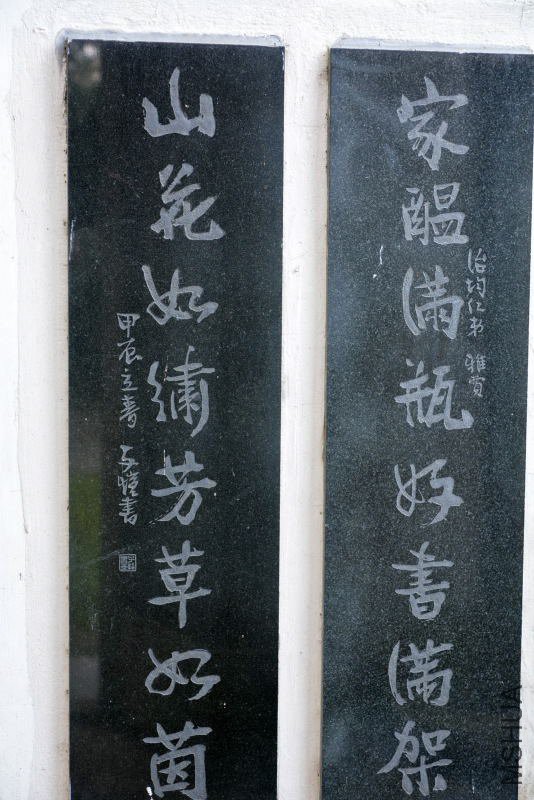 治均仁弟 雅賞
家醖滿瓶好書滿架
山花如繡芳草如茵
甲辰立春 子愷書
MSHUA